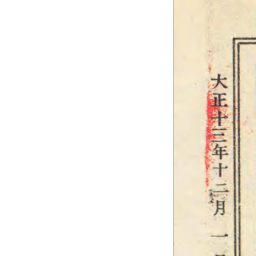 大正十三年十二月一日